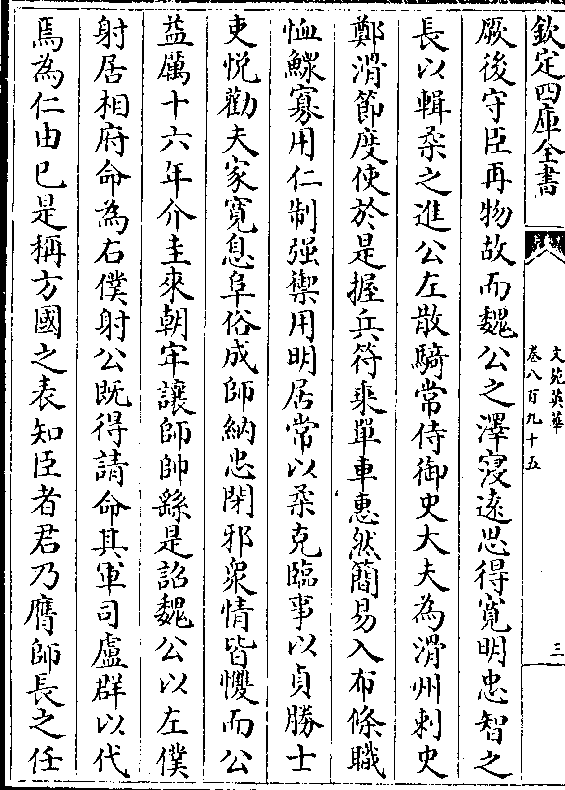 欽定四庫全書
文苑英華
卷八百九十五
三
厥後守臣再物故而魏公之澤寖逺思得寛明忠智之
長以輯柔之進公左散騎常侍御史大夫為滑州刺史
鄭滑節度使於是握兵符乗單車惠然簡易入布條職
恤鰥寡用仁制强禦用明居常以柔克臨事以貞勝士
吏悦勸夫家寛息阜俗成師納忠閉邪衆情皆戄而公
益厲十六年介圭來朝牢讓師帥繇是詔魏公以左僕
射居相府命為右僕射公既得請命其軍司盧群以代
焉為仁由已是稱方國之表知臣者君乃膺師長之任